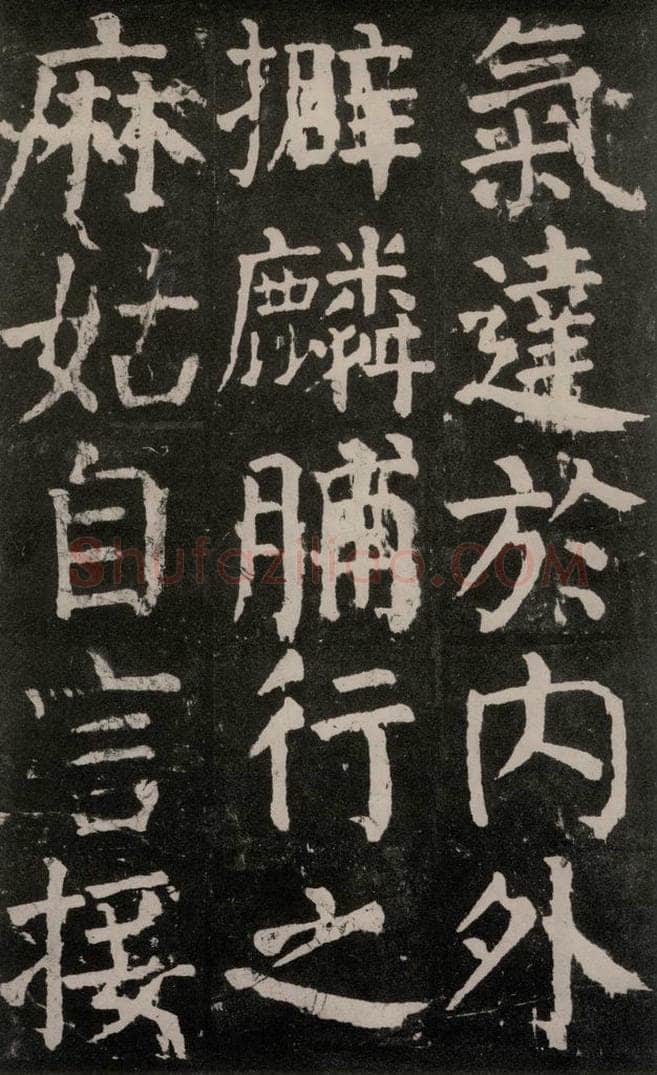 氣達於内外
擗麟脯行之
麻姑自言接
Shufaziliao.COM